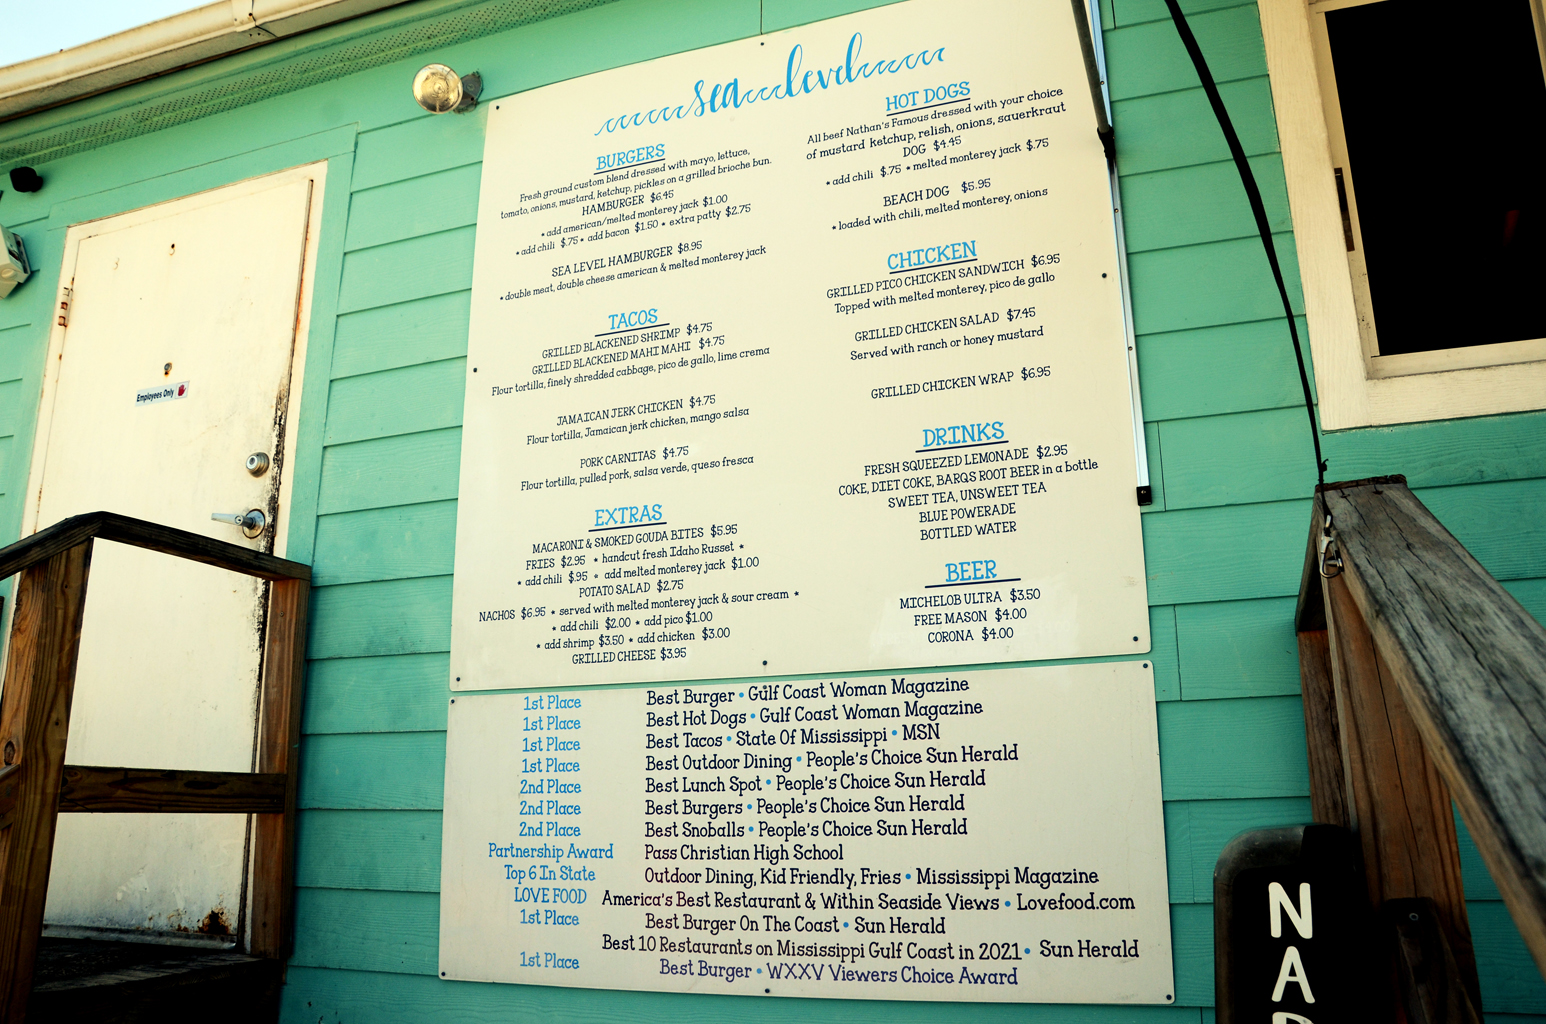 sea level
BURGERS
Fresh ground custom blend dressed with mayo, lettuce,
tomato, onions, mustard, ketchup, pickles on a grilled brioche bun.
HAMBURGER $6.45
* add american/melted monterey jack $1.00
* add chili $.75 * add bacon $1.50 * extra patty $2.75
SEA LEVEL HAMBURGER $8.95
* double meat, double cheese american & melted monterey jack
TACOS
GRILLED BLACKENED SHRIMP $4.75
GRILLED BLACKENED MAHI MAHI $4.75
Flour tortilla, finely shredded cabbage, pico de gallo, lime crema
JAMAICAN JERK CHICKEN $4.75
Flour tortilla, Jamaican jerk chicken, mango salsa
PORK CARNITAS $4.75
Flour tortilla, pulled pork, salsa verde, queso fresca
EXTRAS
MACARONI & SMOKED GOUDA BITES $5.95
FRIES $2.95 * handcut fresh Idaho Russet *
* add chili $.95 * add melted monterey jack $1.00
POTATO SALAD $2.75
NACHOS $6.95 * served with melted monterey jack & sour cream *
* add chili $2.00 * add pico $1.00
* add shrimp $3.50 * add chicken $3.00
GRILLED CHEESE $3.95
HOT DOGS
All beef Nathan's Famous dressed with your choice
of mustard ketchup, relish, onions, sauerkraut
DOG $4.45
* add chili $.75 * melted monterey jack $.75
BEACH DOG $5.95
* loaded with chili, melted monterey, onions
CHICKEN
GRILLED PICO CHICKEN SANDWICH $6.95
Topped with melted monterey, pico de gallo
GRILLED CHICKEN SALAD $7.45
Served with ranch or honey mustard
GRILLED CHICKEN WRAP $6.95
DRINKS
FRESH SQUEEZED LEMONADE $2.95
COKE, DIET COKE, BARQS ROOT BEER in a bottle
SWEET TEA, UNSWEET TEA
BLUE POWERADE
BOTTLED WATER
BEER
MICHELOB ULTRA $3.50
FREE MASON $4.00
CORONA $4.00
1st Place Best Burger • Gulf Coast Woman Magazine
1st Place Best Hot Dogs • Gulf Coast Woman Magazine
1st Place Best Tacos • State Of Mississippi • MSN
1st Place Best Outdoor Dining • People's Choice Sun Herald
2nd Place Best Lunch Spot • People's Choice Sun Herald
2nd Place Best Burgers • People's Choice Sun Herald
2nd Place Best Snoballs • People's Choice Sun Herald
Partnership Award Pass Christian High School
Top 6 In State Outdoor Dining, Kid Friendly, Fries • Mississippi Magazine
LOVE FOOD America's Best Restaurant & Within Seaside Views • Lovefood.com
1st Place Best Burger On The Coast • Sun Herald
Best 10 Restaurants on Mississippi Gulf Coast in 2021 • Sun Herald
1st Place Best Burger • WXXV Viewers Choice Award
Employees Only
N
A